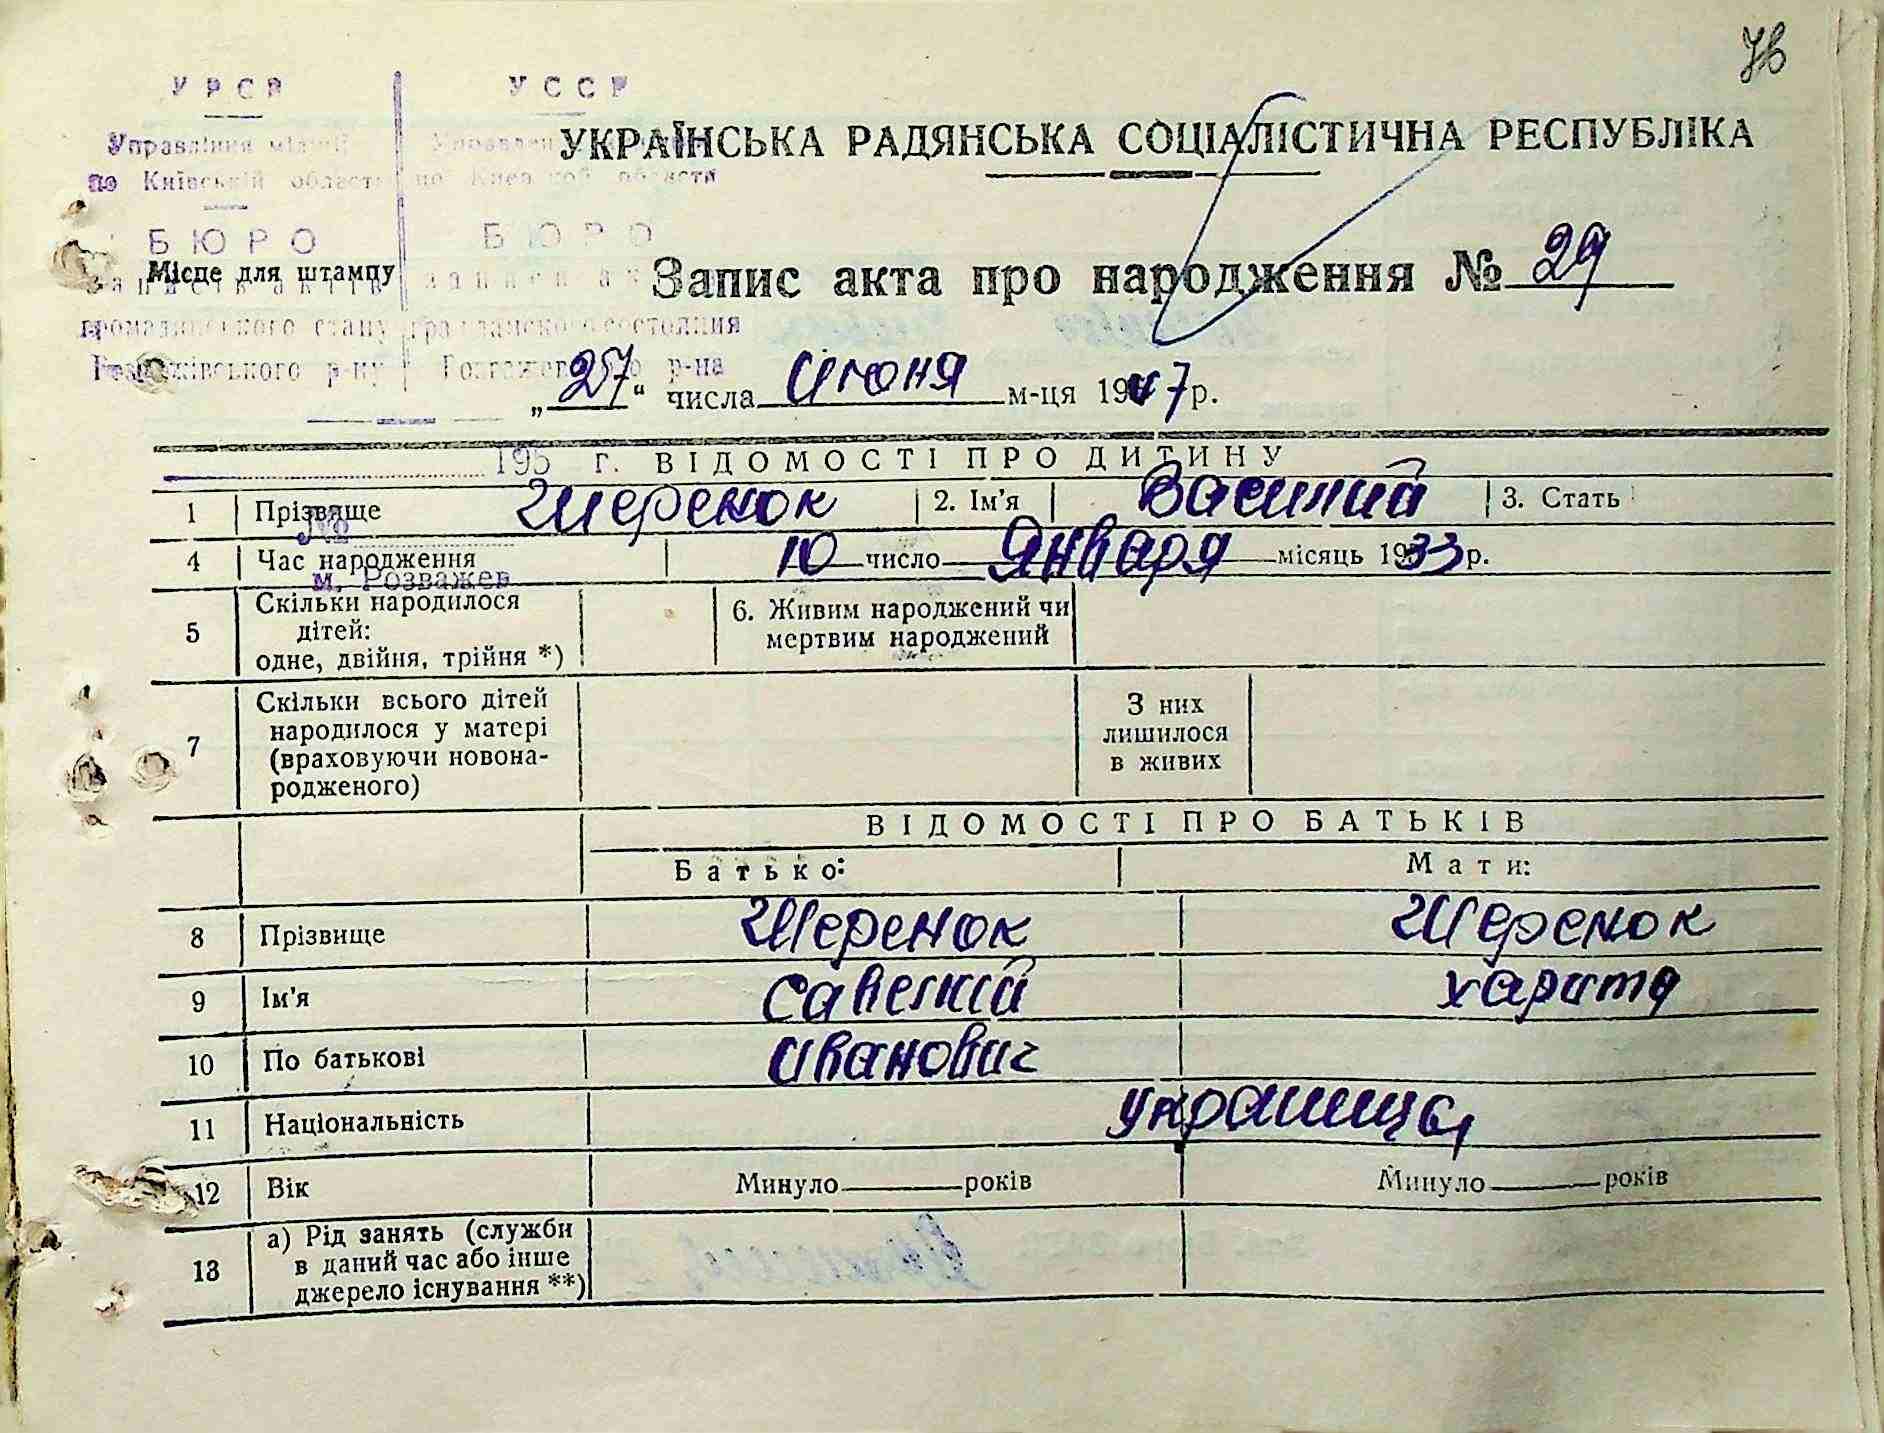 76
УРСР
УССР
Управління міліції
по Київській області
по Киевской области
БЮРО
БЮРО
Місце для штампу
записів актів
громадянського стану
гражданского состояния
Розважівського р-ну
р-на
195 г.
№
м. Розважев
УКРАЇНСЬКА РАДЯНСЬКА СОЦІАЛІСТИЧНА РЕСПУБЛІКА
Запис акта про народження № 29
„27" числа Июня м-ця 1947 р.
ВІДОМОСТІ ПРО ДИТИНУ
1 Прізвище Шеренок 2. Ім'я Василий 3. Стать
4 Час народження 10 число Января місяць 1933 р.
5 Скільки народилося
дітей:
одне, двійня, трійня *)
6. Живим народжений чи
мертвим народжений
7 Скільки всього дітей
народилося у матері
(враховуючи новона-
родженого)
З них
лишилося
в живих
ВІДОМОСТІ ПРО БАТЬКІВ
Батько: Мати:
8 Прізвище Шеренок Шеренок
9 Ім'я Савелий Харита
10 По батькові Иванович
11 Національність Украинцы
12 Вік Минуло років Минуло років
13 а) Рід занять (служби
в даний час або інше
джерело існування **)